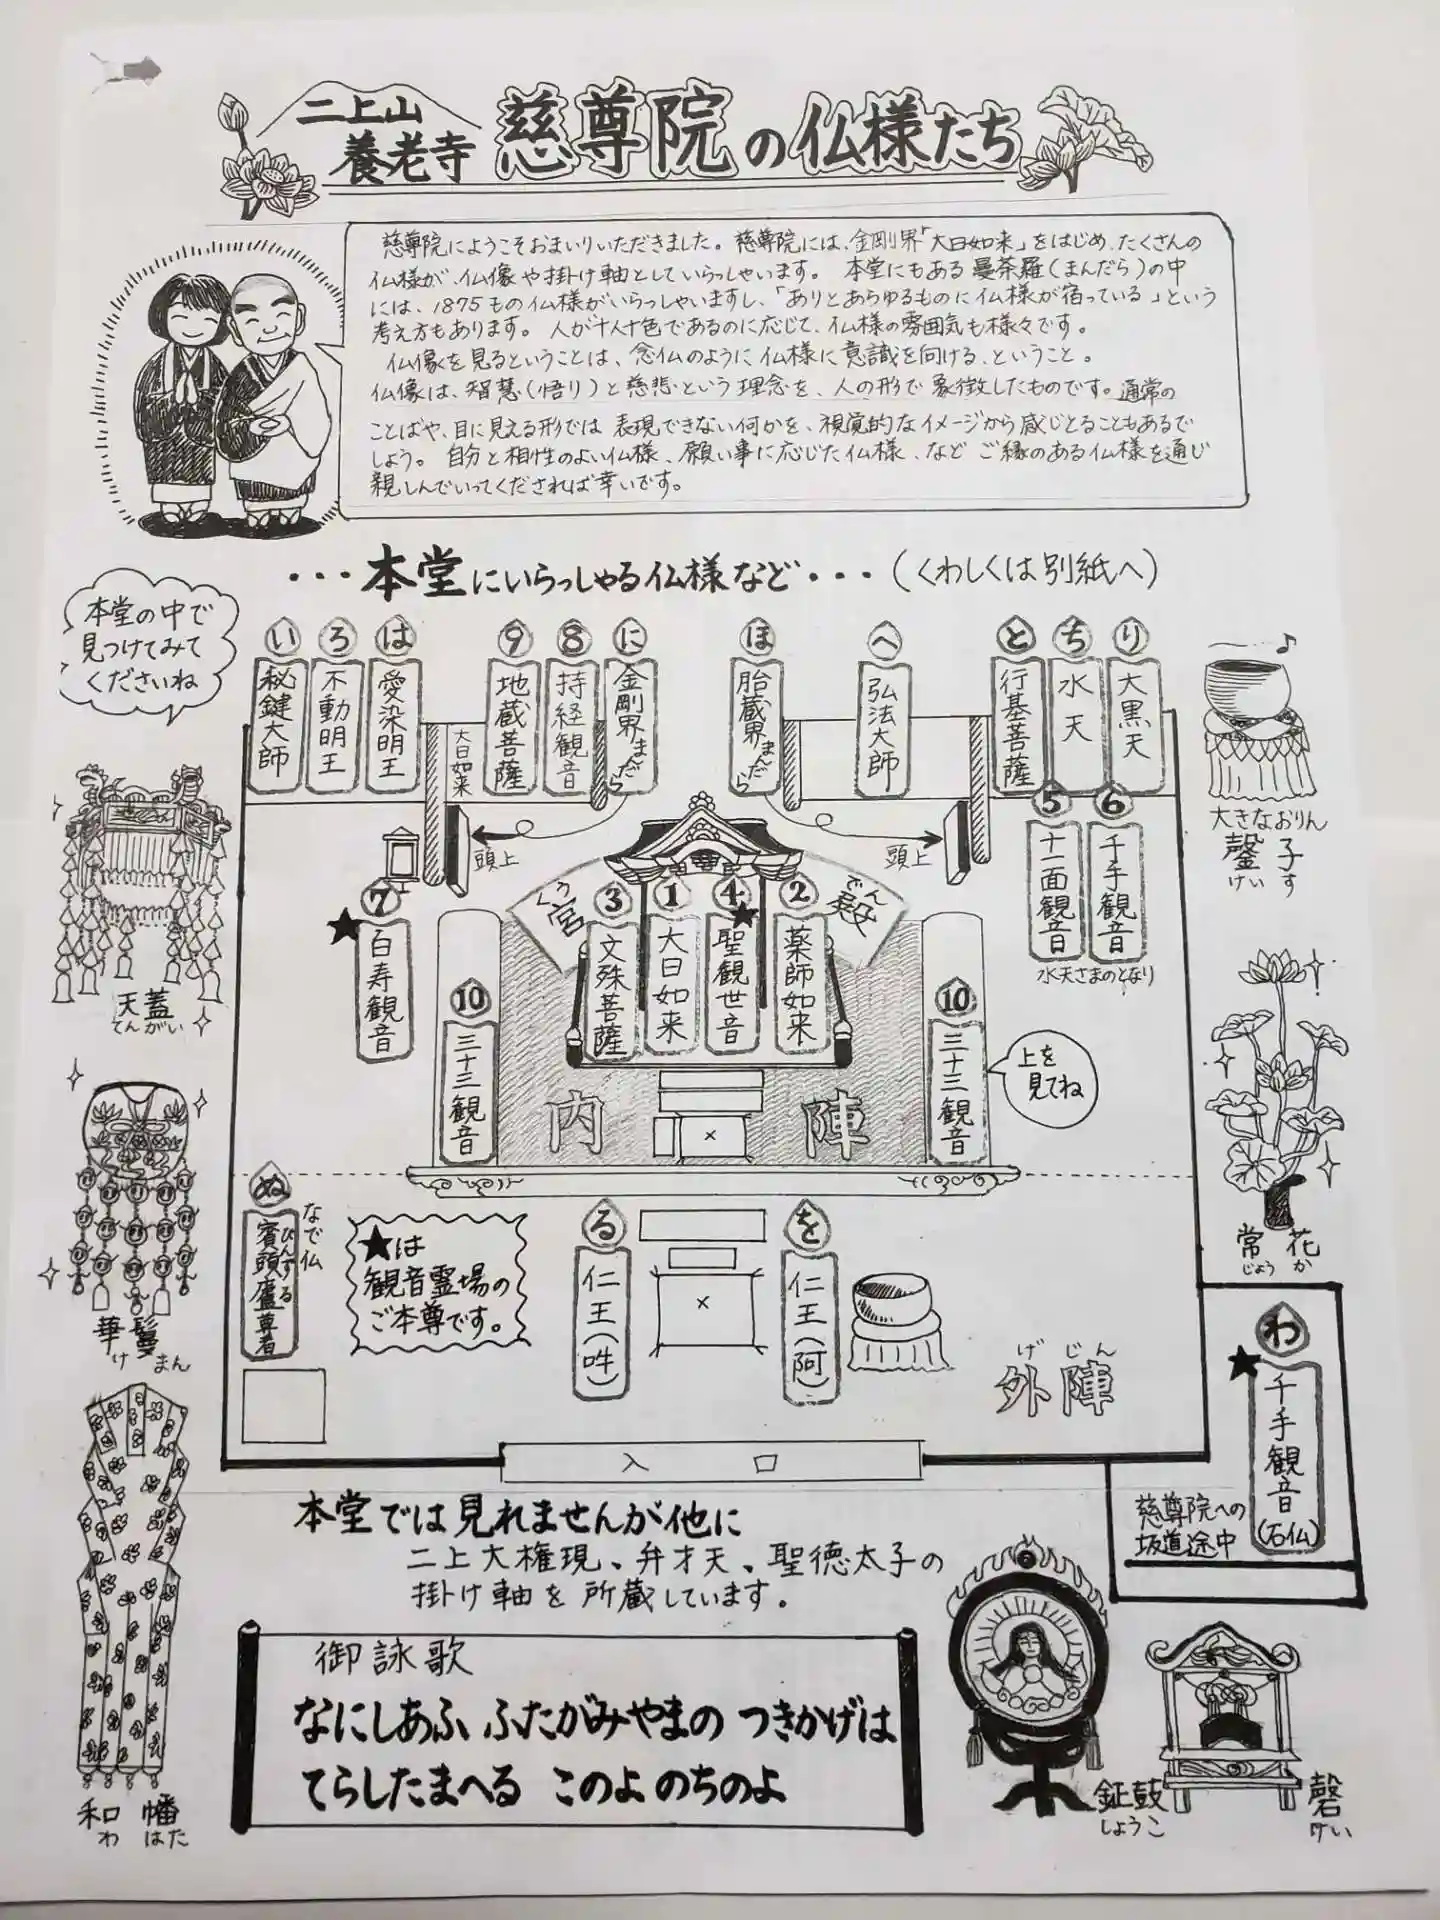 二上山
養老寺 慈尊院の仏様たち
慈尊院にようこそおまいりいただきました。慈尊院には、金剛界「大日如来」をはじめ、たくさんの
仏様が、仏像や掛け軸としていらっしゃいます。 本堂にもある曼荼羅(まんだら)の中
には、1875もの仏様がいらっしゃいますし、「ありとあらゆるものに仏様が宿っている」という
考え方もあります。 人が十人十色であるのに応じて、仏様の雰囲気も様々です。
仏像を見るということは、念仏のように仏様に意識を向ける、ということ。
仏像は、智慧(悟り)と慈悲という理念を、人の形で象徴したものです。通常の
ことばや、目に見える形では表現できない何かを、視覚的なイメージから感じとることもあるで
しょう。 自分と相性のよい仏様、願い事に応じた仏様、など ご縁のある仏様を通じ
親しんでいってくだされば幸いです。
・・・本堂にいらっしゃる仏様など・・・(くわしくは別紙へ)
本堂の中で
見つけてみて
くださいね
い 秘鍵大師
ろ 不動明王
は 愛染明王
大日如来
9 地蔵菩薩
8 持経観音
に 金剛界まんだら
ほ 胎蔵界まんだら
へ 弘法大師
と 行基菩薩
ち 水天
り 大黒天
大きなおりん
鏧子
けいす
頭上
頭上
5 十一面観音
6 千手観音
水天さまのとなり
くう
宮
でん
殿
7 ★ 百寿観音
3 文殊菩薩
1 大日如来
4 ★ 聖観世音
2 薬師如来
10 三十三観音
10 三十三観音
上を
見てね
内陣
天蓋
てんがい
華鬘
けまん
常花
じょうか
ぬ 賓頭盧尊者
びんずる
なで仏
★は
観音霊場の
ご本尊です。
る 仁王(吽)
を 仁王(阿)
げじん
外陣
入口
わ ★ 千手観音(石仏)
慈尊院への
坂道途中
本堂では見れませんが他に
二上大権現、弁才天、聖徳太子の
掛け軸を所蔵しています。
御詠歌
なにしあふ ふたがみやまの つきかげは
てらしたまへる このよ のちのよ
和幡
わ はた
鉦鼓
しょうこ
磬
けい